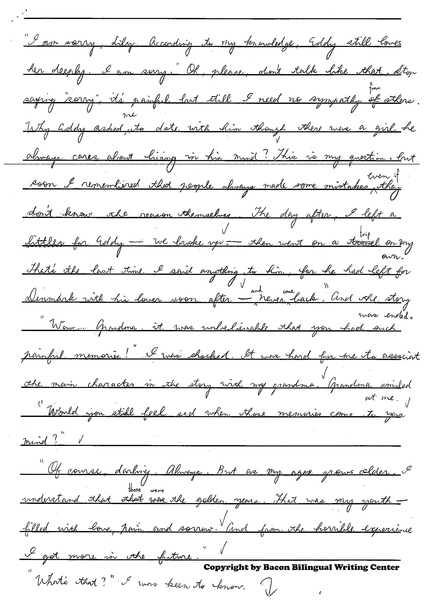 "I am sorry, Lily. According to my knowledge, Eddy still loves
her deeply. I am sorry." Oh, please, don't talk like that. Stop
saying "sorry", it's painful but still I need no sympathy from of others.
Why Eddy asked me to date with him though there were a girl he
always cares about living in his mind? This is my question, but
soon I remembered that people always made some mistakes even if they
don't know the reason themselves. The day after, I left a
for Eddy — we broke up — then went on a travel trip on my
own.
That's the last time I said anything to him, for he had left for
Denmark with his lover soon after — and "never come back." And the story
was ended.
"Wow... Grandma, it was unbelievable that you had such
painful memories!" I was shocked. It was hard for me to associate
the main character in the story with my grandma. Grandma smiled
at me.
"Would you still feel sad when those memories come to your
mind?"
"Of course, darling. Always. But as my ages grows older, I
understand that those were the golden years. That was my youth —
filled with love, pain and sorrow. And from the horrible experience
I got more in the future."
Copyright by Bacon Bilingual Writing Center
"What's that?" I was keen to know.